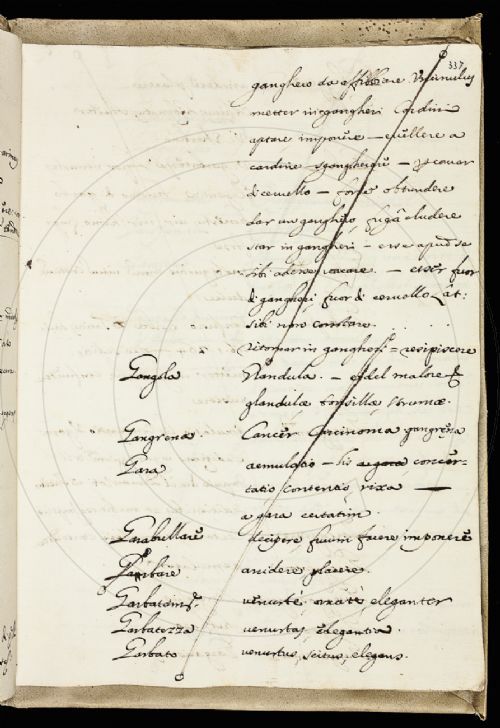 337
ganghero da affibbiare Uncinulus
metter in gangheri Cardini
aptare imponere – evellere a
cardine sgangherare – cavar
di cervello – obtundere
dar un ganghero fugã eludere
star in gangheri – esse apud se
sibi adesse vacare. – esser fuor
di gangheri fuor di cervello
sibi non constare.
ritornar in gangheri = resipiscere
Gangola Glandula. – del malore
glandulæ tonsillæ, strumæ.
Gangrena Cancer Carcinoma gangrena
Gara aemulatio – concer-
tatio contentio, rixa —
a gara certatim.
Garabullare decipere facere imponere
Garbare arridere placere.
venustè, eleganter
Garbatezza venustas, elegantia
Garbato venustus, scitus, elegans.